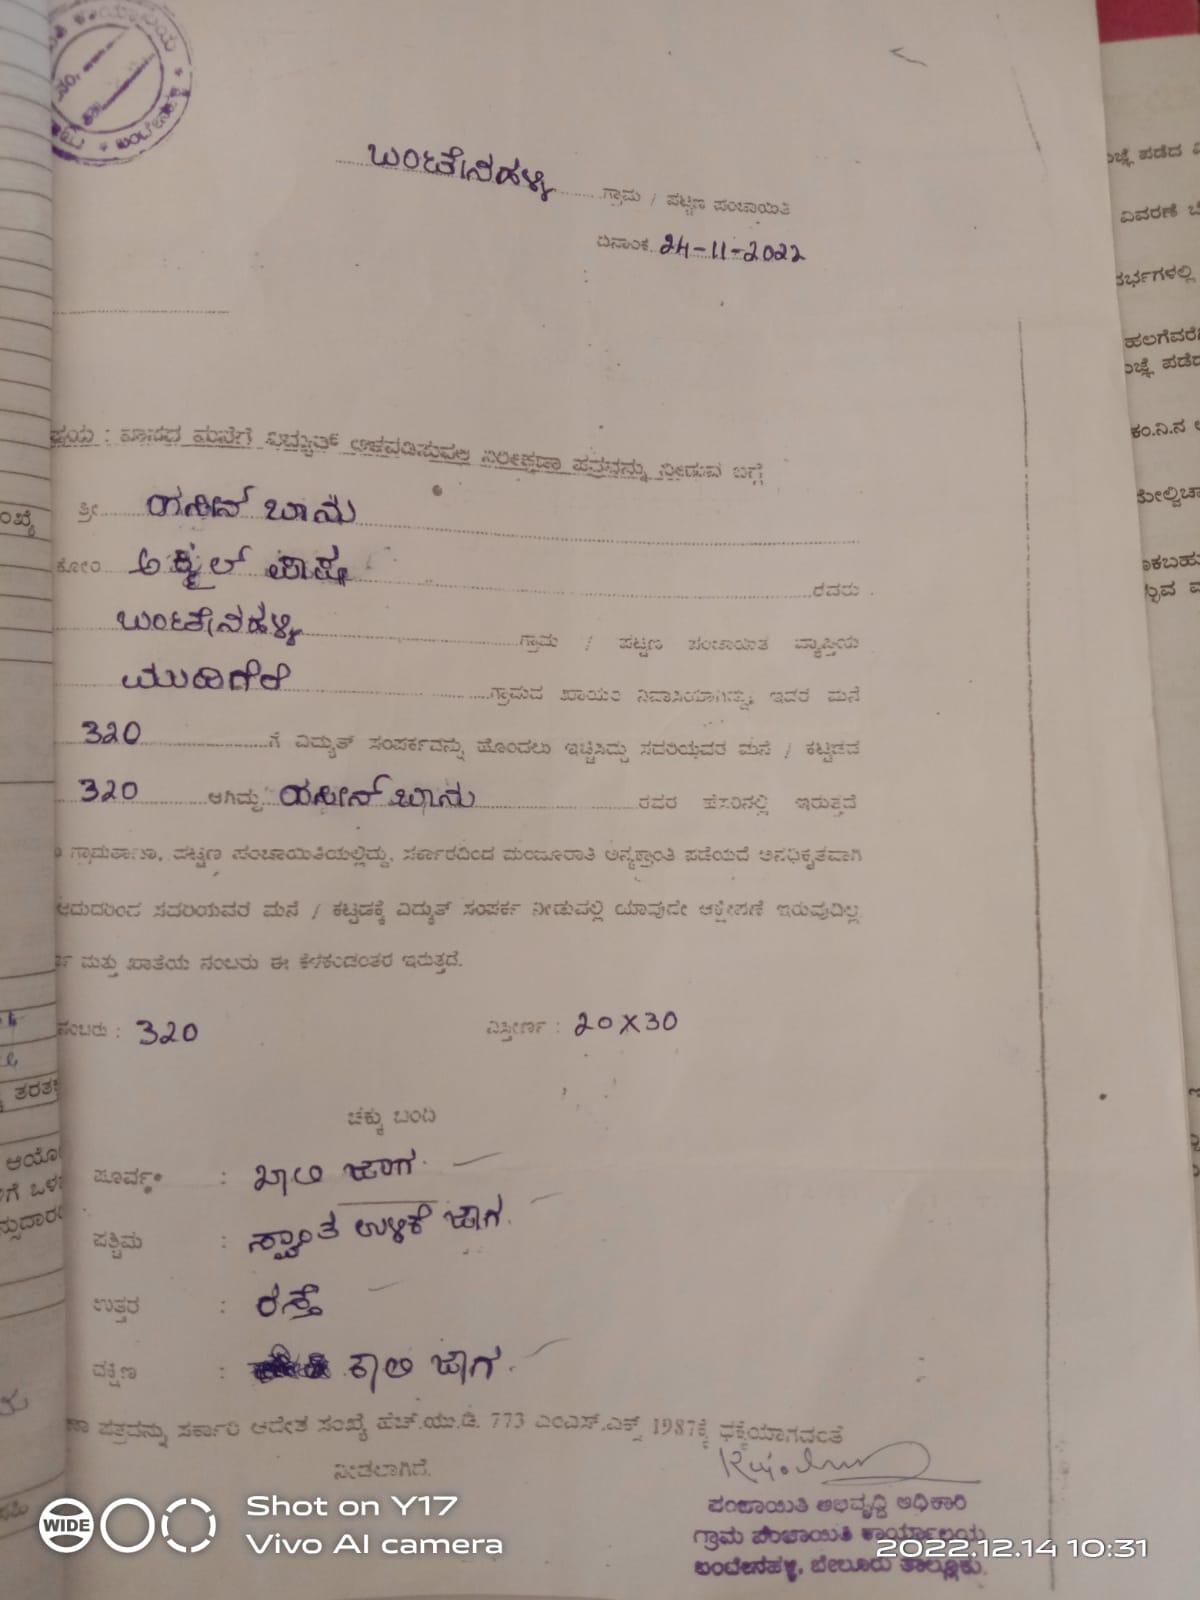 ಬಂಟೇನಹಳ್ಳಿ ಗ್ರಾಮ / ಪಟ್ಟಣ ಪಂಚಾಯಿತಿ
ದಿನಾಂಕ 24-11-2022
ವಾಸದ ಮನೆಗೆ ವಿದ್ಯುತ್ ಅಳವಡಿಸುವಲ್ಲಿ ನಿರೀಕ್ಷಣಾ ಪತ್ರವನ್ನು ನೀಡುವ ಬಗ್ಗೆ
ಶ್ರೀ ಹಸೀನ್ ಬಾನು
ಕೋಂ ಪಾಷ ರವರು
ಬಂಟೇನಹಳ್ಳಿ ಗ್ರಾಮ / ಪಟ್ಟಣ ಪಂಚಾಯಿತಿ ವ್ಯಾಪ್ತಿಯ
ಮುದಿಗೆರೆ ಗ್ರಾಮದ ಖಾಯಂ ನಿವಾಸಿಯಾಗಿದ್ದು, ಇವರ ಮನೆ
320 ಗೆ ವಿದ್ಯುತ್ ಸಂಪರ್ಕವನ್ನು ಹೊಂದಲು ಇಚ್ಚಿಸಿದ್ದು ಸದರಿಯವರ ಮನೆ / ಕಟ್ಟಡದ
320 ಆಗಿದ್ದು ಹಸೀನ್ ಬಾನು ರವರ ಹೆಸರಿನಲ್ಲಿ ಇರುತ್ತದೆ
ಗ್ರಾಮಠಾಣಾ, ಪಟ್ಟಣ ಪಂಚಾಯಿತಿಯಲ್ಲಿದ್ದು, ಸರ್ಕಾರದಿಂದ ಮಂಜೂರಾತಿ ಅನ್ಯಕ್ರಾಂತಿ ಪಡೆಯದೆ ಅನಧಿಕೃತವಾಗಿ
ಆದುದರಿಂದ ಸದರಿಯವರ ಮನೆ / ಕಟ್ಟಡಕ್ಕೆ ವಿದ್ಯುತ್ ಸಂಪರ್ಕ ನೀಡುವಲ್ಲಿ ಯಾವುದೇ ಆಕ್ಷೇಪಣೆ ಇರುವುದಿಲ್ಲ
ಮತ್ತು ಖಾತೆಯ ನಂಬರು ಈ ಕೆಳಕಂಡಂತರ ಇರುತ್ತದೆ.
ನಂಬರು : 320 ವಿಸ್ತೀರ್ಣ : 20X30
ಚಕ್ಕು ಬಂದಿ
ಪೂರ್ವ : ಖಾಲಿ ಜಾಗ.
ಪಶ್ಚಿಮ : ಸ್ವಾಂತ ಉಳಿಕೆ ಜಾಗ.
ಉತ್ತರ : ರಸ್ತೆ
ದಕ್ಷಿಣ : ಕಾಲಿ ಜಾಗ.
ಪತ್ರವನ್ನು ಸರ್ಕಾರಿ ಆದೇಶ ಸಂಖ್ಯೆ ಹೆಚ್.ಯು.ಡಿ. 773 ಎಂಎಸ್.ಎಕ್ಸ್ 1987ಕ್ಕೆ ಧಕ್ಕೆಯಾಗದಂತೆ
ನೀಡಲಾಗಿದೆ.
ಪಂಚಾಯಿತಿ ಅಭಿವೃದ್ಧಿ ಅಧಿಕಾರಿ
ಗ್ರಾಮ ಪಂಚಾಯಿತಿ ಕಾರ್ಯಾಲಯ
ಬಂಟೇನಹಳ್ಳಿ, ಬೇಲೂರು ತಾಲ್ಲೂಕು.
WIDE
Shot on Y17
Vivo AI camera
2022.12.14 10:31